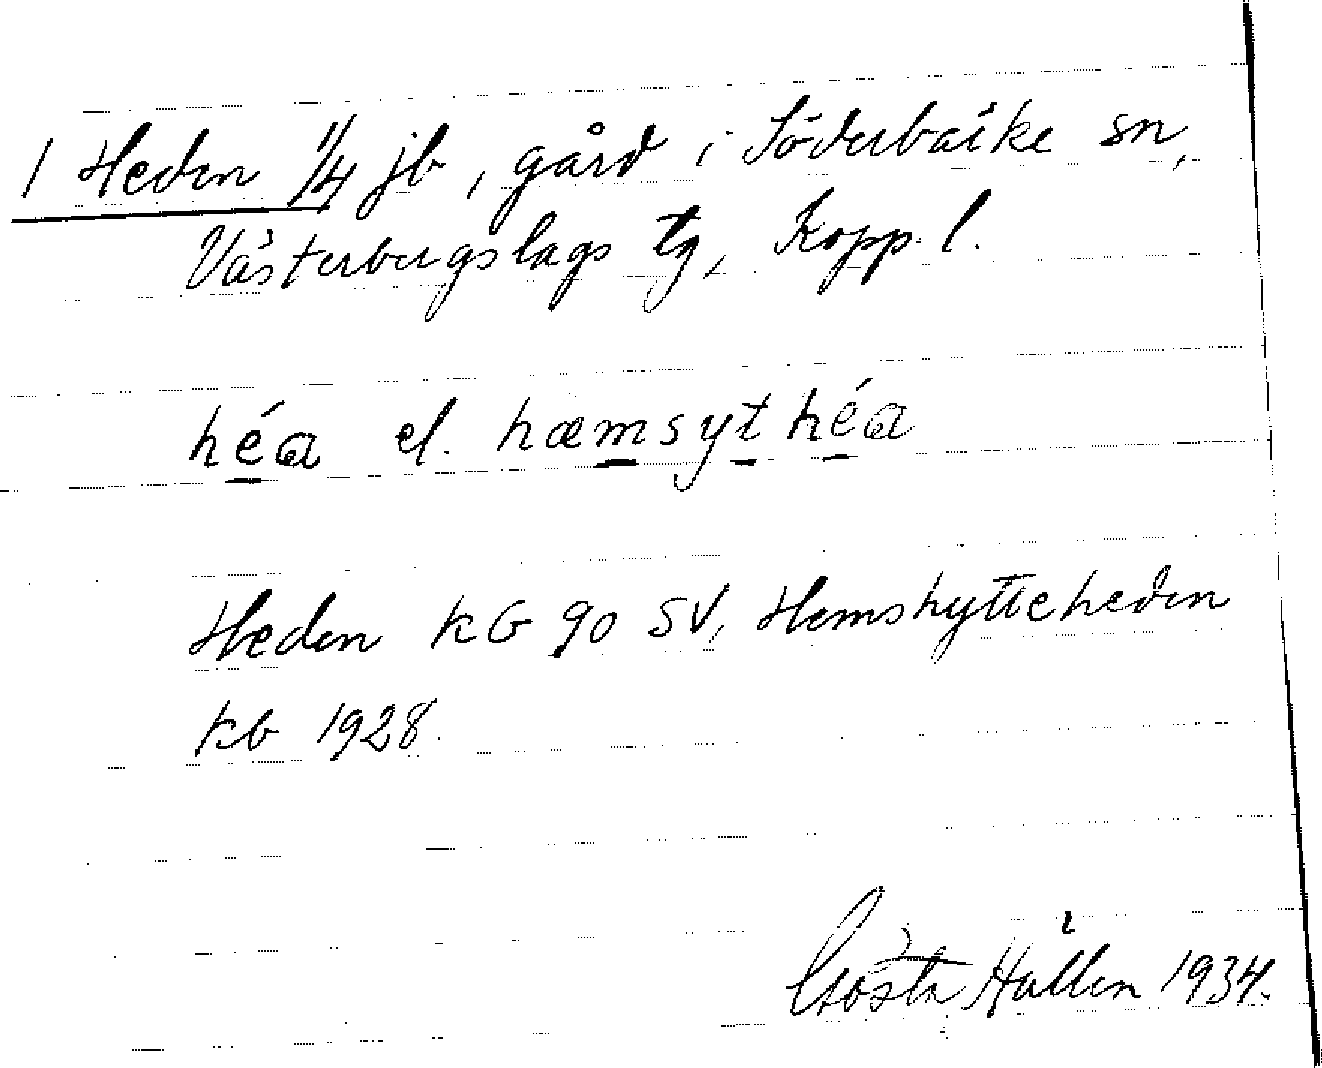 1 Heden 1/4 jb, gård i Söderbärke sn,
Västerbergslags tg, Kopp. l.
héa el. hæmsythéa
Heden KG 90 SV, Hemshytteheden
kb 1928.
Gösta Hallen 1934.